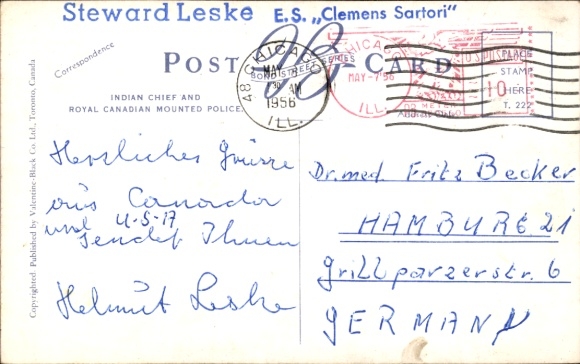 Steward Leske E.S. „Clemens Sartori"
Correspondence
POST CARD
BOND STREET SERIES
INDIAN CHIEF AND
ROYAL CANADIAN MOUNTED POLICE
CHICAGO
MAY
30 AM
1956
ILL.
48
CHICAGO
MAY-7'56
ILL.
U.S. POSTAGE
10
PLACE
STAMP
HERE
T. 222
Address Only
Herzliches Grüsse
aus Canada
und U-S-A
sendet Ihnen
Helmut Leske
Dr. med. Fritz Becker
HAMBURG 21
Grillparzerstr. 6
GERMANY
Copyrighted. Published by Valentine-Black Co. Ltd., Toronto, Canada